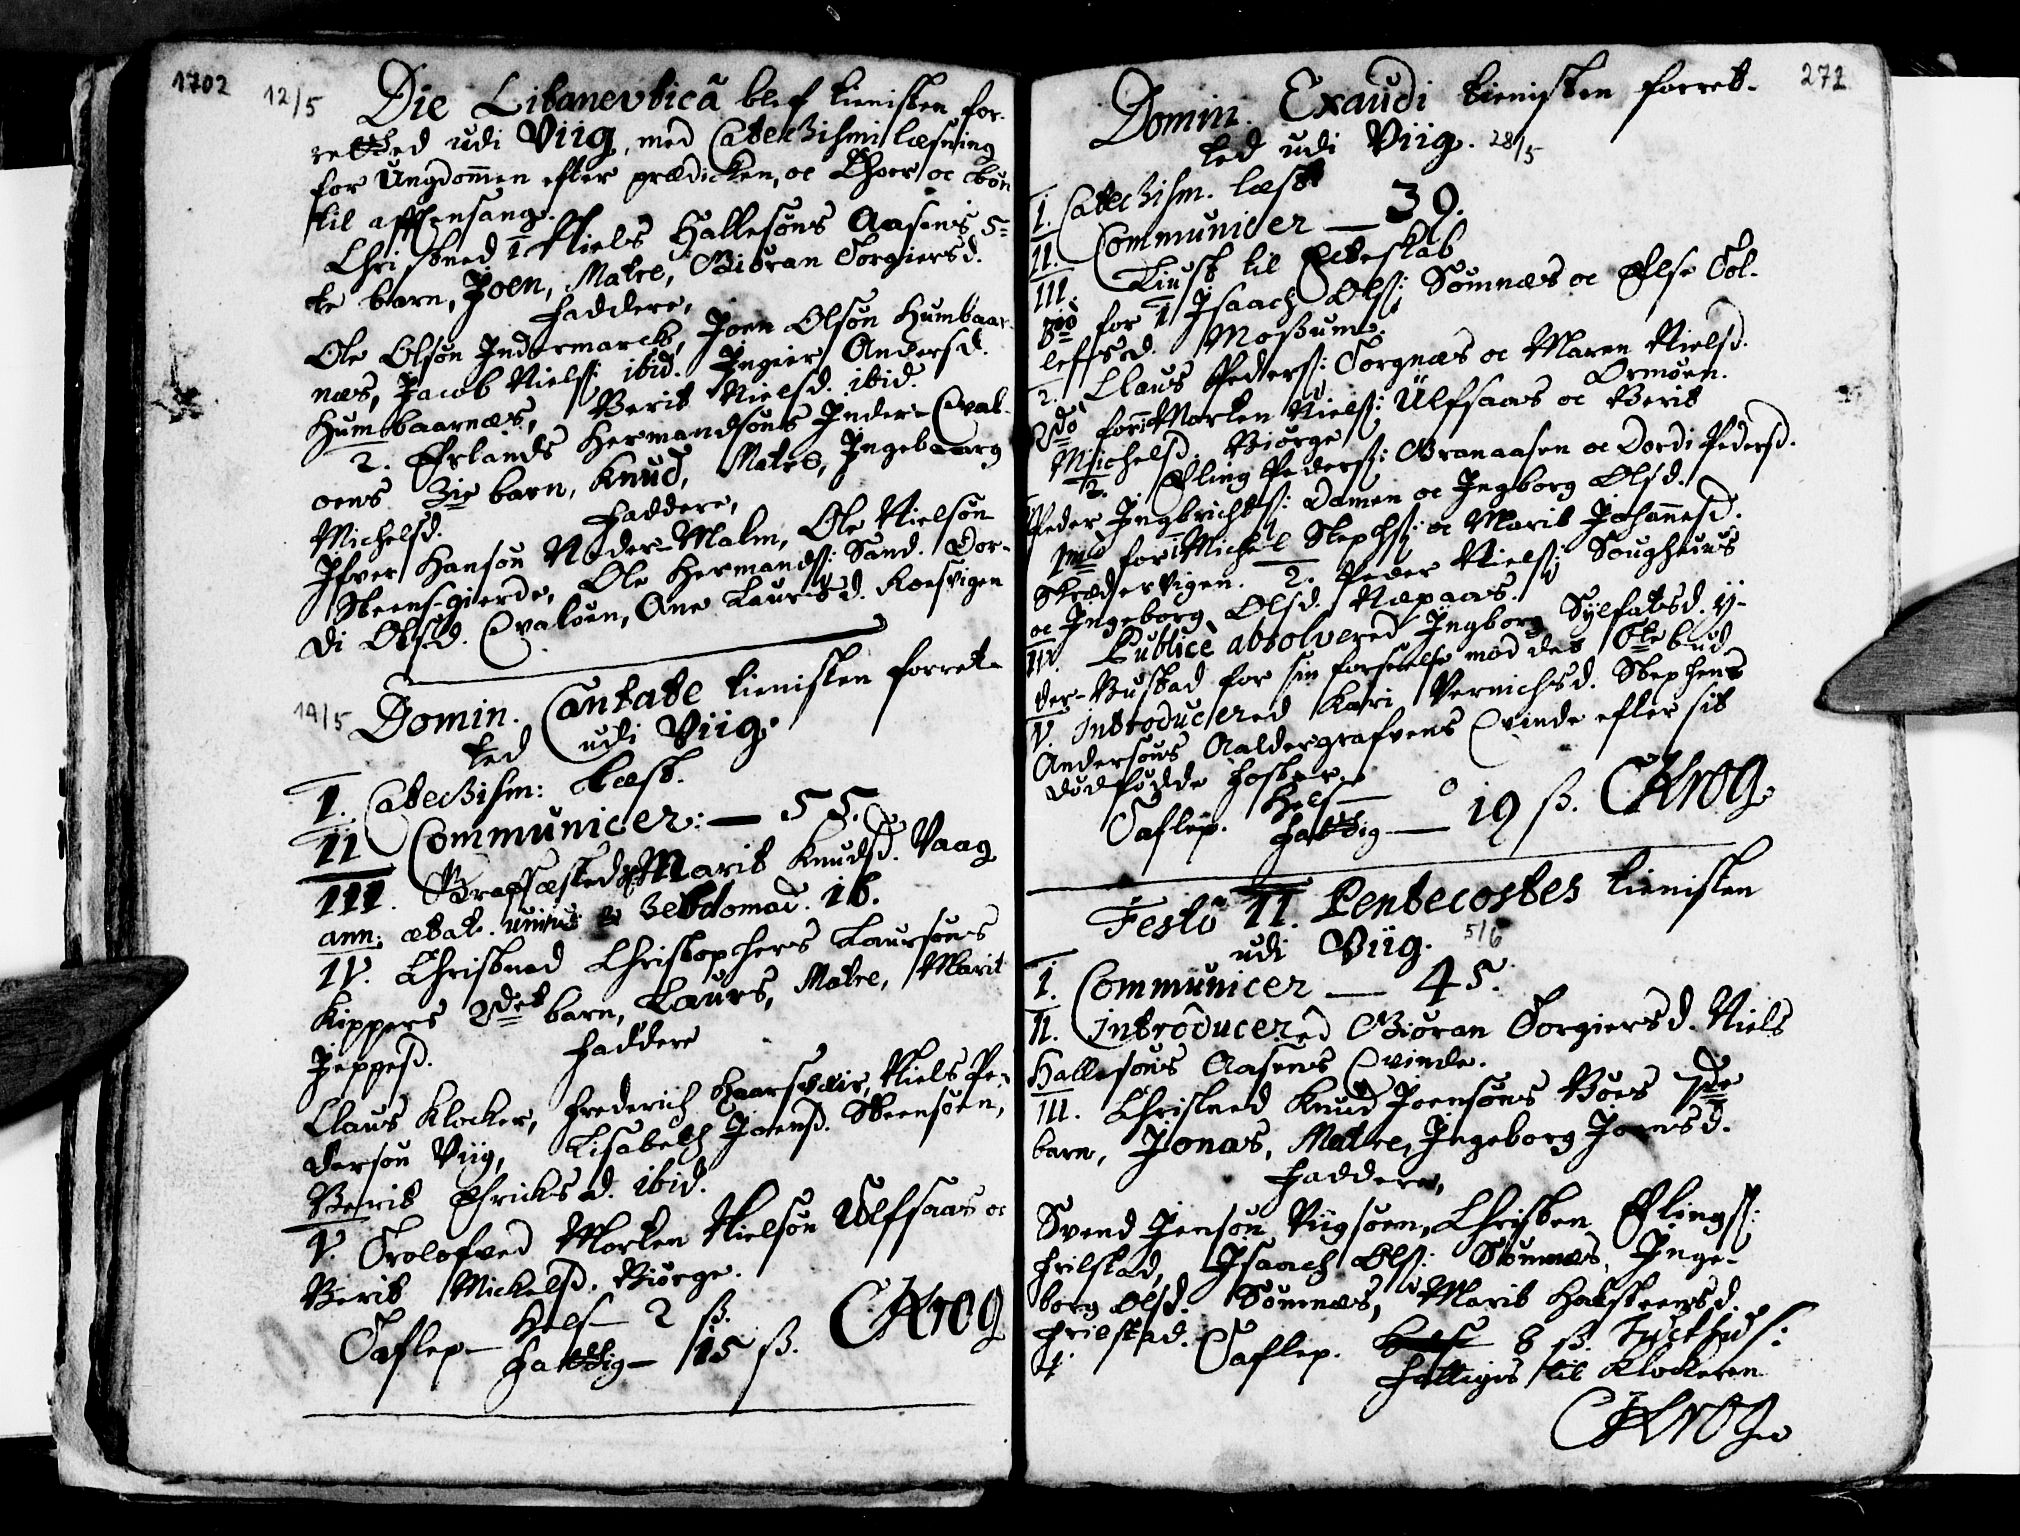 1702
12/5
Die Litaneutica blef tienisten for-
retted udi Viig, med Catechismi læsning
for Ungdommen efter prædicken, oc Choer oc bøn
til afftensang.
Christned 1 Niels Hallesøns Aasens 5-
te barn, Joen, Matre, Giøran Torgiersd.
Faddere,
Ole Olsøn Indermarck, Joen Olsøn Humbaar-
næs, Jacob Niels: ibid. Ingier Andersd.
Humbaarnæs, Berit Nielsd. ibid.
2. Erlands Hermandsøns Inder-Qval-
øens 3ie barn, Knud, Matre, Ingebaarg
Michelsd. Faddere,
Ifver Hansøn Neder-Malm, Ole Nielsøn
Steens-gierde, Ole Hermands: Sand. Dor-
di Olsd. Qvaløen, Ane Lauritsd. Korsvigen
19/5
Domin. Cantate tienisten forret-
ted udi Viig.
I. Catechism: læst.
II Communicer: — 55.
III. Grafsæsted Marit Knudsd. Vaag
ann: ætat. unius hebdomad. 16.
IV. Christned Christophers Laursøns
Kippers 2det barn, Laurs, Matre, Marit
Jeppesd. Faddere
Claus Klocker, Frederich Haarsdeir, Niels Pe-
dersøn Viig, Lisabeth Joens. Steensøen,
Berit Ericksd. ibid.
V. Trolofved Morten Nielsøn Ulfsaas oc
Berit Mickelsd. Biørge.
Hosp 2 ß.
Taflep — fattig — 15 ß. CKrog
271
Domin. Exaudi tienisten forret-
ted udi Viig. 28/5
I. Catechism. læst
II. Communicer — 39.
III. Liust til Ecteskab
3tiò for 1 Isaach Ols: Sømnæs oc Else Tol-
leffsd. Mossum.
2. Claus Peders: Torgnæs oc Maren Nielsd.
Ormøen.
2dò for 1 Morten Niels: Ulfsaas oc Berit
Michelsd. Biørge
2. Elling Peders: Granaasen oc Dordi Pedersd.
Peder Ingbrichts: Damen oc Ingborg Olsd.
1mò for 1 Michel Steph: oc Marit Johannesd.
Skrædervigen. 2. Peder Niels: Soughauns
oc Ingeborg Olsd. Næpaas.
IV. Publicè absolvered Ingborg Sylfatsd. Y-
der-Bustad for sin forseelse mod det 6te bud
V. Introducered Kari Vernichsd. Stephens
Andersøns Aaldergrafvens Qvinde efter sit
dødfødde foster.
Hosp — 0
Taflep. fattig — 19 ß. CKrog
Festo II. Pentecostes tienisten
udi Viig. 5/6
I. Communicer — 45.
II. Introducered Giøran Torgiersd. Niels
Hallesøns Aasens Qvinde.
III. Christned Knud Joensøns Bøes 7de
barn, Jonas, Matre, Ingeborg Joensd.
Faddere,
Svend Jensøn Viigsøen, Christen Ellings:
Frilstad, Isaach Ols: Sømnæs, Inge-
borg Olsd. Sømnæs, Marit Halsteensd.
Frilstad.
Taflep. 8 ß.
fattigis til Klockeren
CKrog